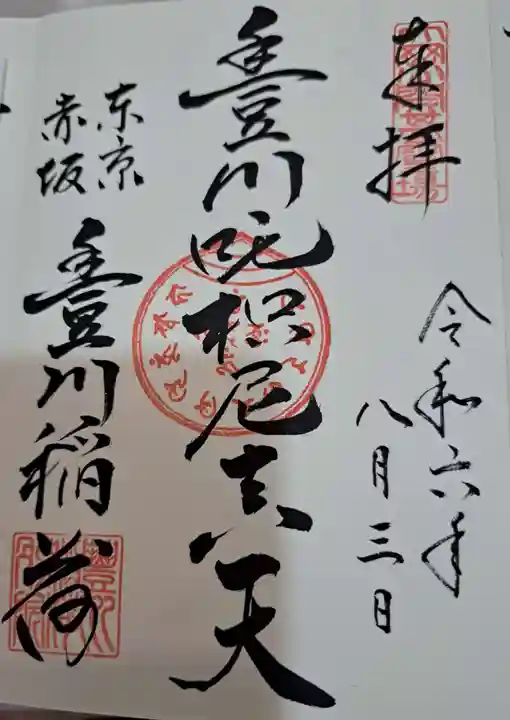 奉拝
令和六年
八月三日
豊川吒枳尼真天
東京
赤坂
豊川稲荷